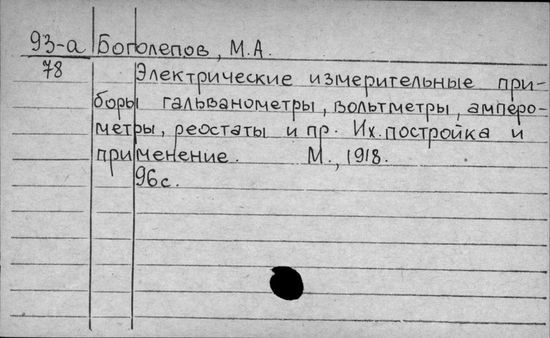 93-а Боголепов, М.А.
78 Электрические измерительные при-
боры гальванометры, вольтметры, амперо-
метры, реостаты и пр. Их постройка и
применение. М., 1918.
96с.